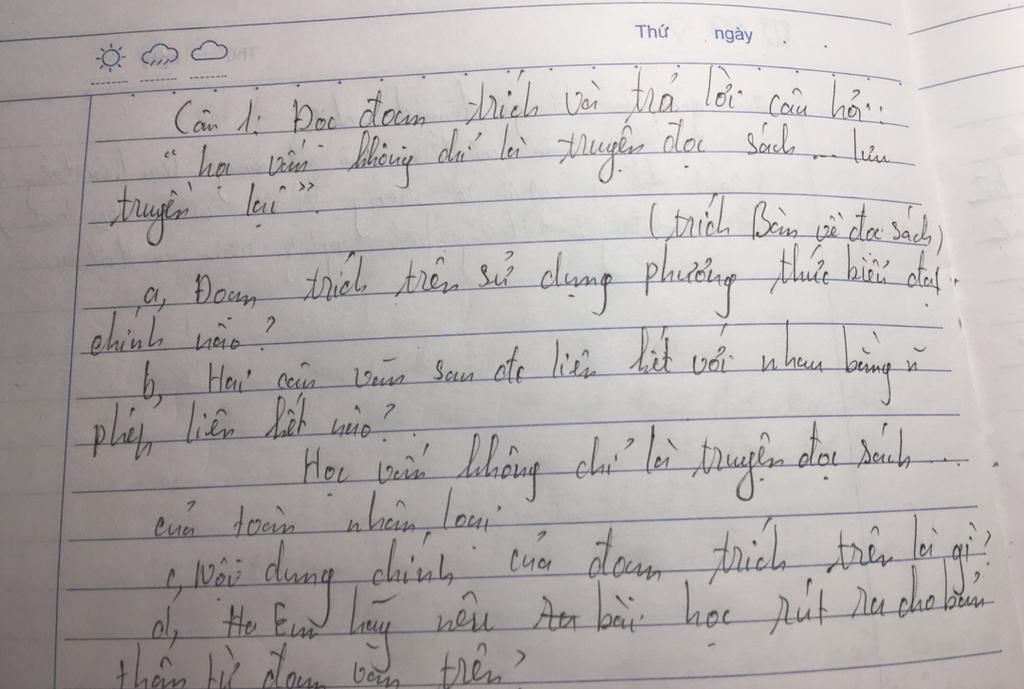 Thứ ngày
Câu 1: Đọc đoạn trích và trả lời câu hỏi:
"học vấn không chỉ là truyện đọc sách ... lưu
truyền lại".
(trích Bàn về đọc sách)
a, Đoạn trích trên sử dụng phương thức biểu đạt
chính nào?
b, Hai câu văn sau đc liên kết với nhau bằng
phép liên kết nào?
Học vấn không chỉ là truyện đọc sách ...
của toàn nhân loại
c, Nội dung chính của đoạn trích trên là gì?
d, Em hãy nêu bài học rút ra cho bản
thân từ đoạn văn trên?